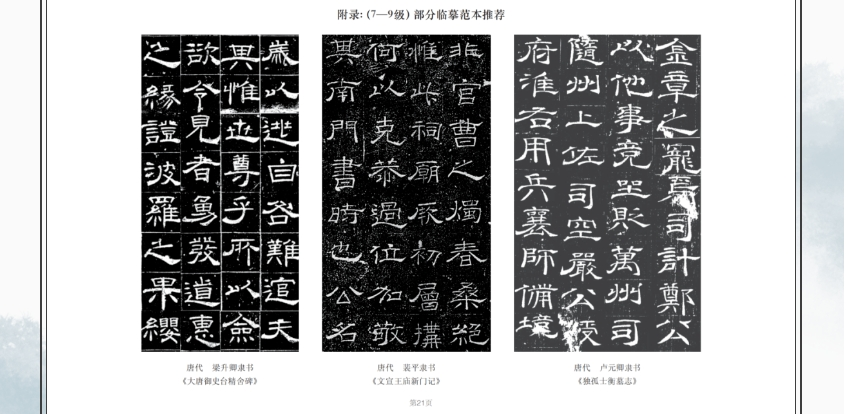 附录:（7—9级）部分临摹范本推荐
歲以逃自咎難逭夫
其惟世尊乎所以僉
欲令見者勇發道惠
之緣證波羅之果纓
非官曹之燭春桑絕
惟此祠廟厥初層構
何以克恭過位加敬
其南門書時也公名
金章之寵司計鄭公
以他事竟坐貶萬州司
隨州上佐司空嚴公
府淮右用兵襄師備境
唐代　梁升卿隶书
《大唐御史台精舍碑》
唐代　裴平隶书
《文宣王庙新门记》
唐代　卢元卿隶书
《独孤士衡墓志》
第21页